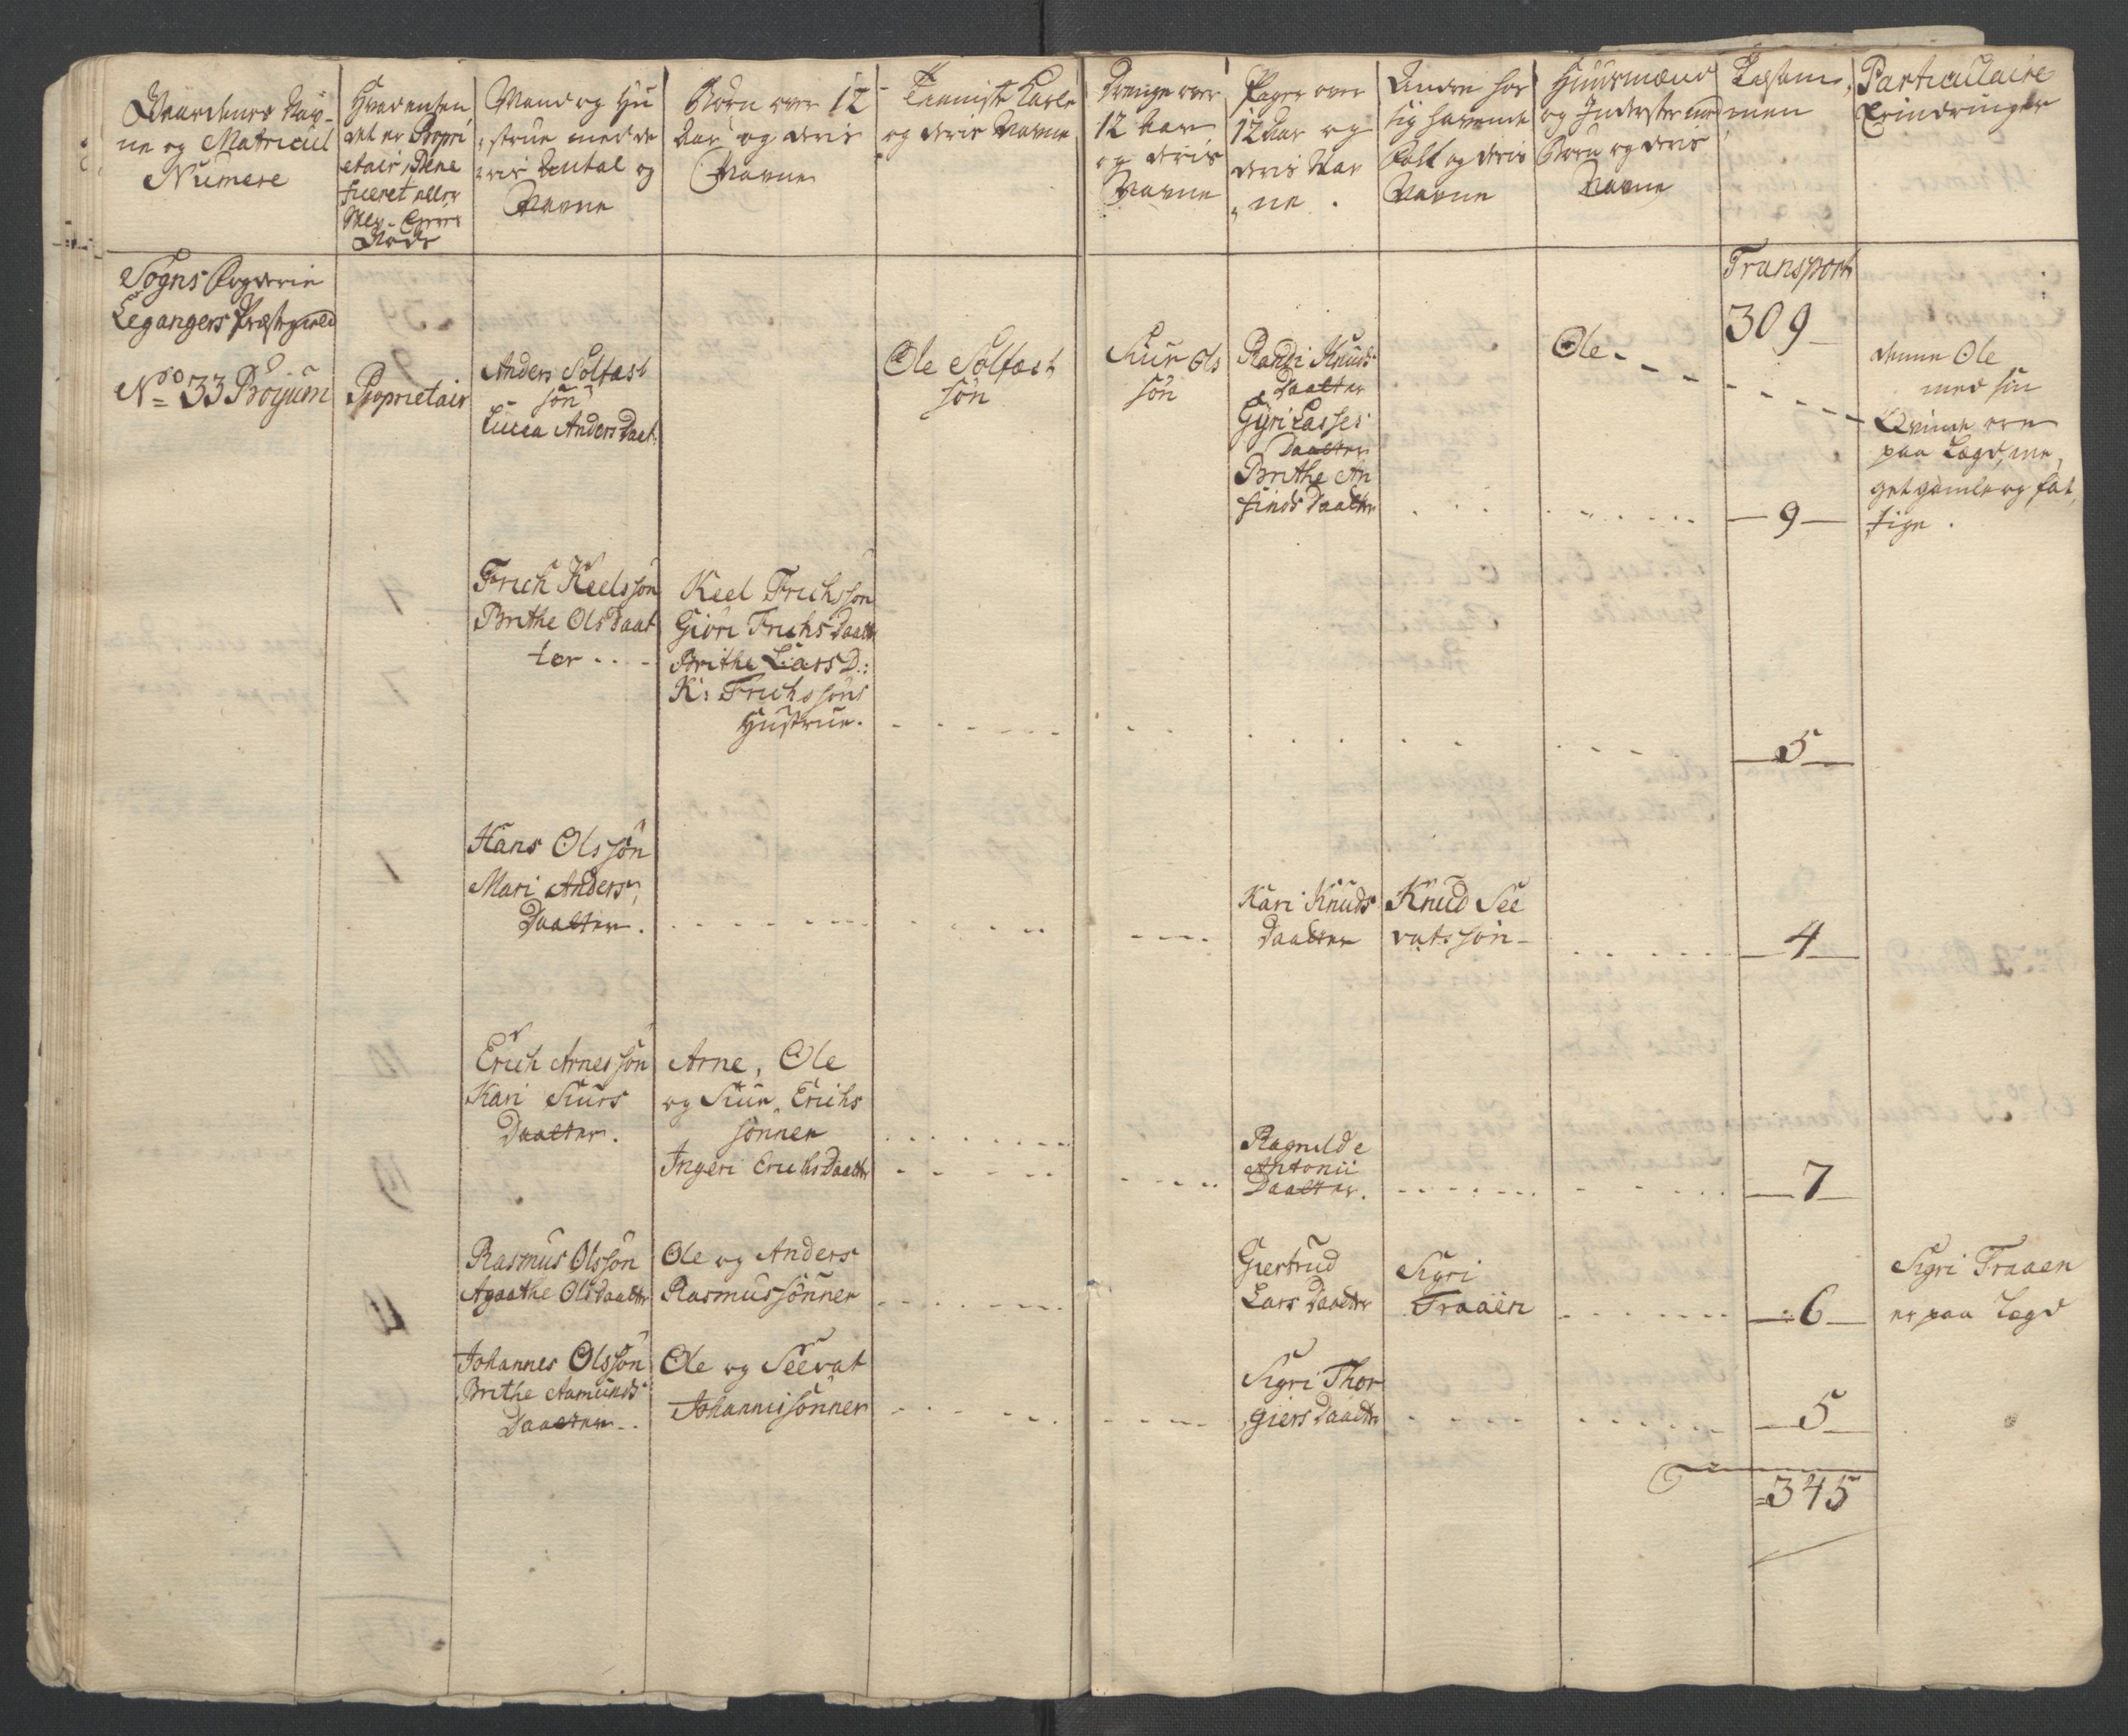 Gaardenes Nav-
ne og Matricul
Numere
Hvad enten
det er Propri
etair, Bene
ficeret eller
Gods
Mand og Hu
strue med de
ris Antal og
Navne
Børn over 12
Aar og deris
Navne
Tienniste Karle
og deris Navne
Drenge over
12 Aar
og deris
Navne
Piger over
12 Aar og
deris Nav
ne.
Andre hos
sig havende
Folk og deris
Navne
Huusmænd
og Inderster med
Børn og deris
Navne
Tilsam
men
Particulaire
Erindringer
Sogns Fogderie
Legangers Præstegield
No 33 Böyum
Proprietair
Anders Solfæst
sön
Lucea Anders Daat.
Ole Solfæst
sön
Siur Ols
sön
Randi Knuds
Daatter
Gyri Lasses
Daatter
Brithe An
finds Daatter
Ole
Transport
309
9
denne Ole
med sin
Qvinde ere
paa Lægd, me
get gamle og fat
tige.
Frich Keelssön
Brithe Ols Daat
ter
Keel Frichssön
Giöri Frichs Daatter
Brithe Lars D.:
K: Frichssöns
Hustrue.
5
Hans Olssön
Mari Anders
Daatter.
Kari Knuds
Daatter
Knud See
vatssön
4
Erich Arnessön
Kari Siurs
Daatter.
Arne, Ole
og Siur Erichs
sönner
Ingeri Erichs Daatter
Ragnilde
Antonii
Daatter.
7
Rasmus Olssön
Agaathe Ols Daatter
Ole og Anders
Rasmussönner
Giertrud
Lars Daatter
Sigri
Traaen
6
Sigri Traaen
er paa Lægd
Johannes Olssön
Brithe Aamunds
Daatter
Ole og Seevat
Johannissönner
Sigri Thor
giers Daatter
5
345